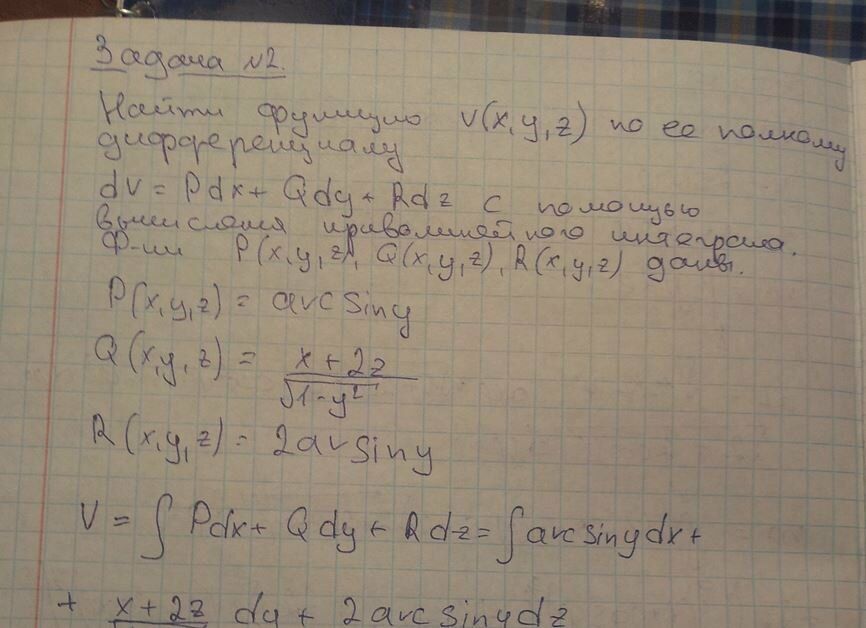 Задача №2.
Найти функцию V(x,y,z) по ее полному
дифференциалу
dV = Pdx + Qdy + Rdz с помощью
вычисления криволинейного интеграла.
Ф-ии P(x,y,z), Q(x,y,z), R(x,y,z) даны.
P(x,y,z) = arcsiny
Q(x,y,z) = x + 2z
√1-y²
R(x,y,z) = 2arsiny
V = ∫ Pdx + Qdy + Rdz = ∫arcsinydx +
+ x + 2z dy + 2arcsinydz